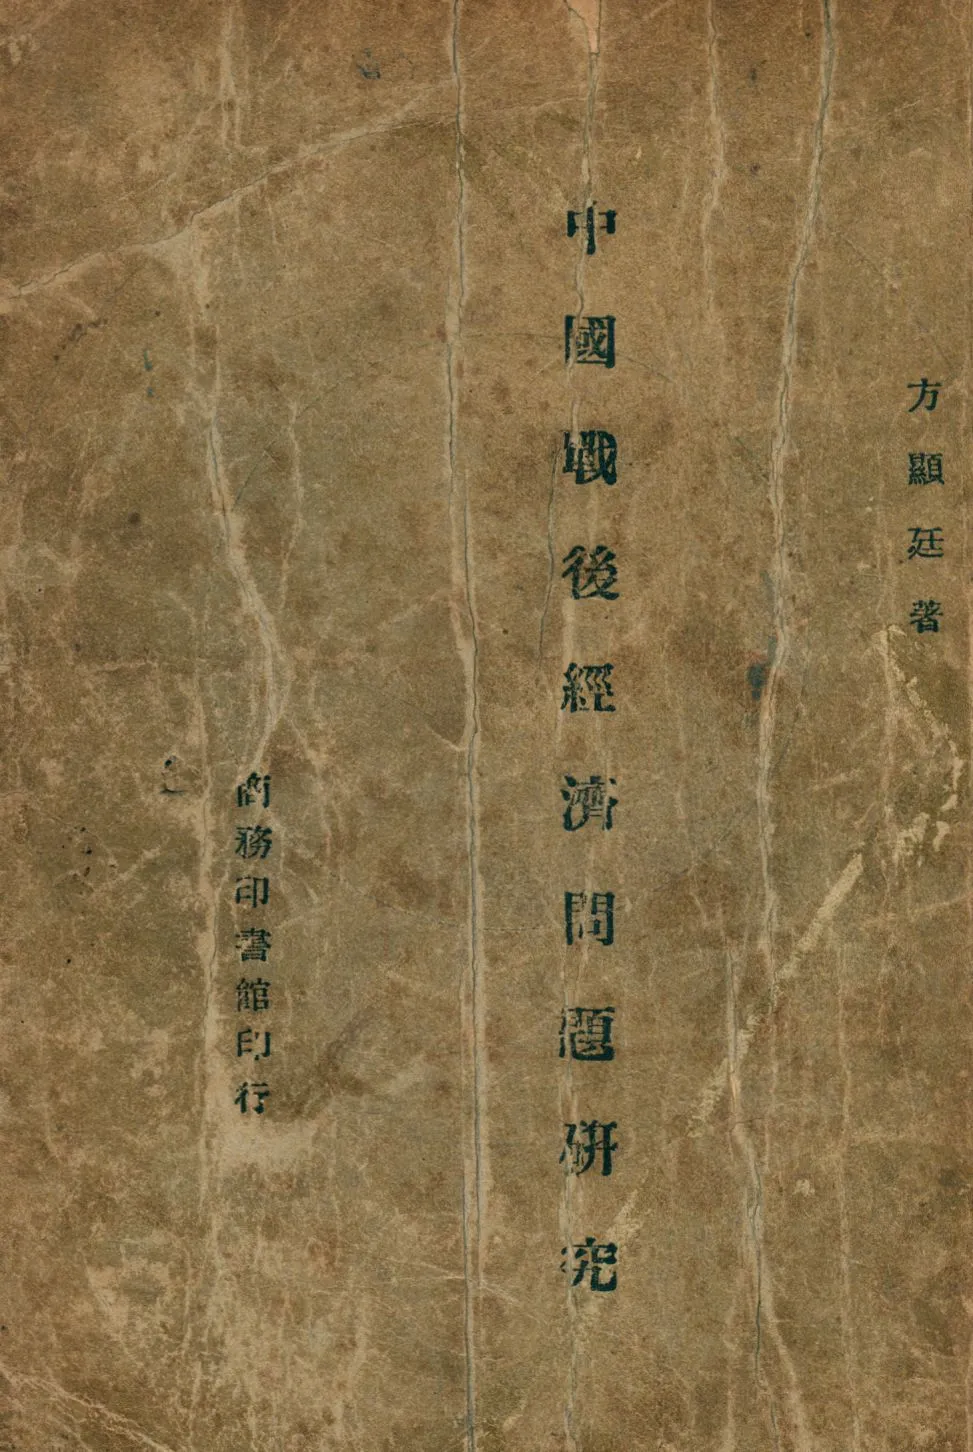 方顯廷著
中國戰後經濟問題研究
商務印書館印行